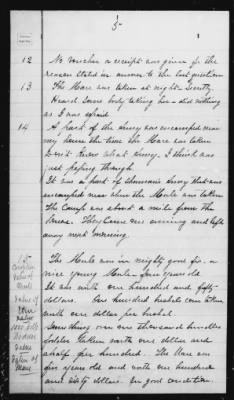 5-
12 No voucher or receipt was given for the
reason stated in answer to the last question
13 The Mare was taken at night - Secretly.
Heard some body taking her - did nothing
as I was afraid
14 A part of the army was encamped near
my home the time the Mare was taken
Don't know what army, I think was
just passing through.
It was a part of Sherman's army that was
encamped near when the Mule was taken
The Camp was about a mile from the
house. They came one evening and left
away next morning.
15- The Mule was in mighty good fix, a
nice young Mule - four years old.
It was worth one hundred and fifty
dollars. One hundred bushels corn taken
worth one dollar per bushel.
Something over one thousand bundles
fodder taken worth one dollar and
a half per hundred. The Mare was
five years old and worth one hundred
and sixty dollars. In good condition.
Condition
value of
Mule
Value of
corn
1000 bdls
fodder
value of
Mare